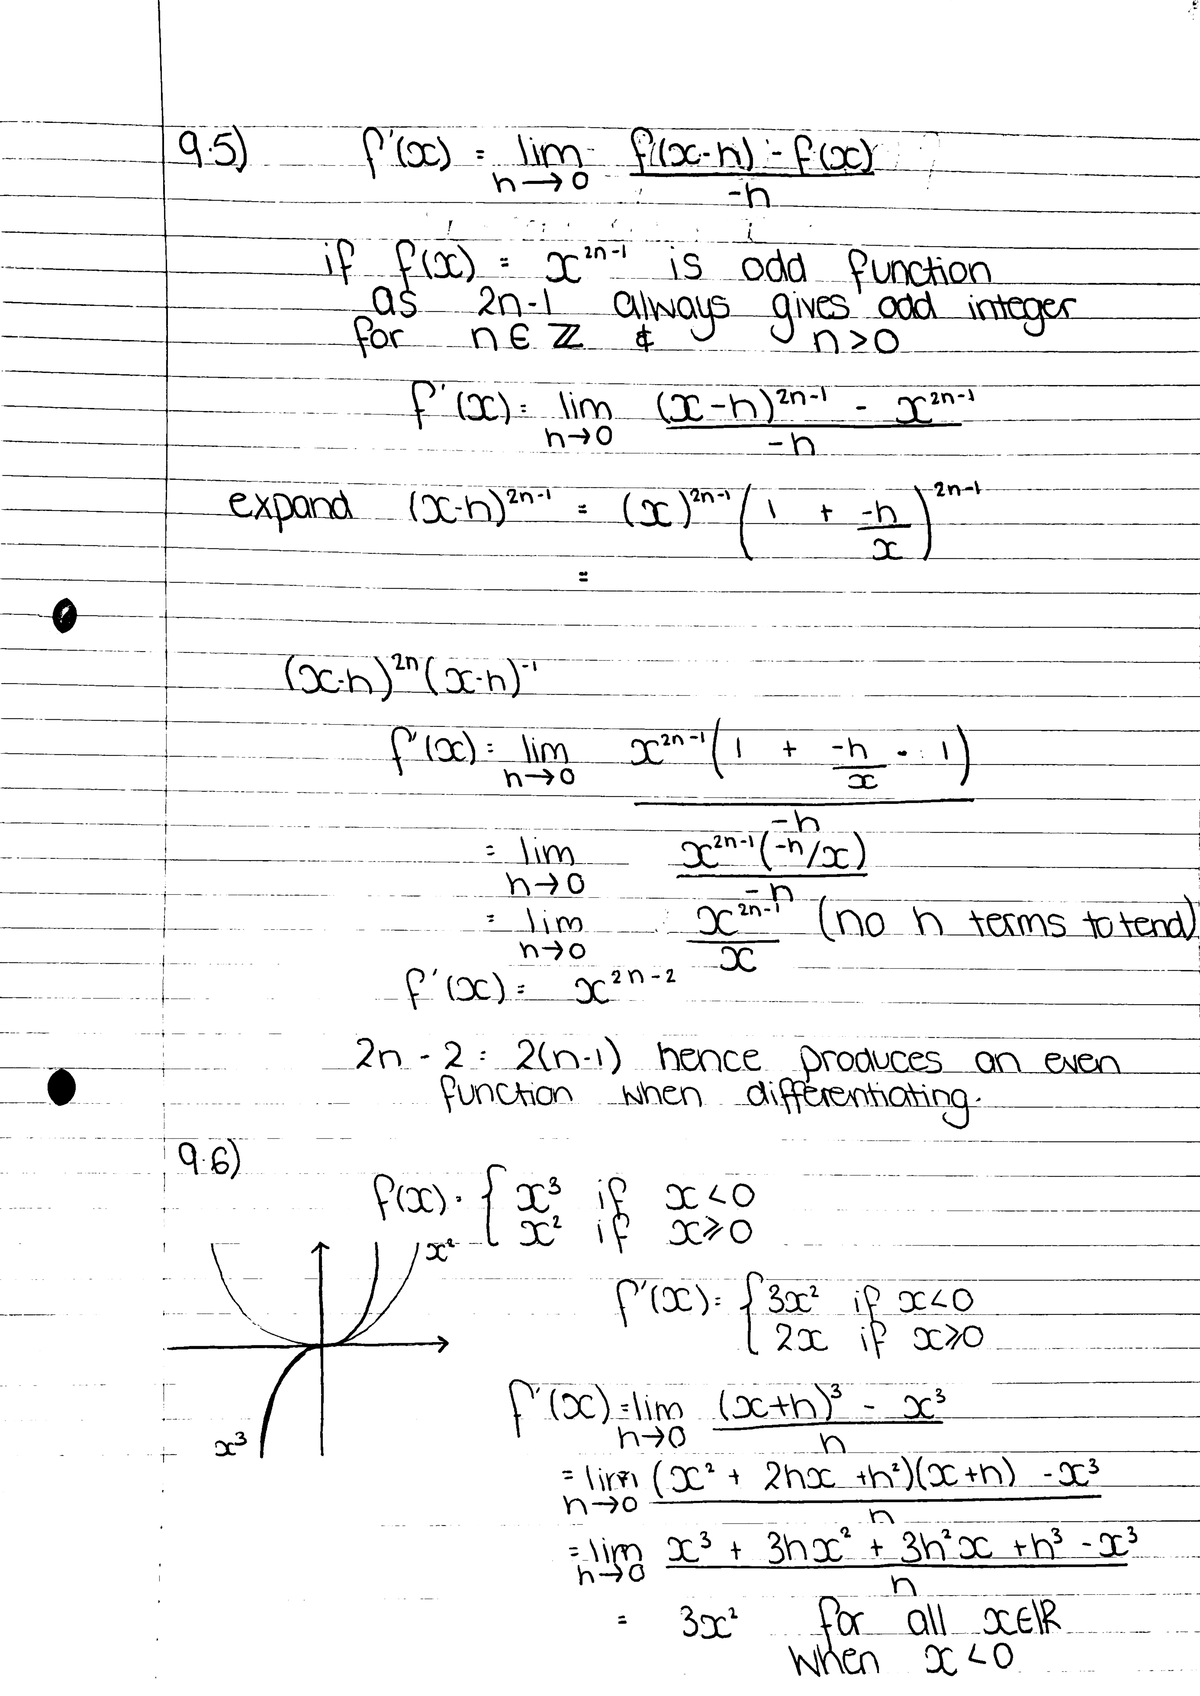 9.5) f'(x) = lim h→0 f(x-h) - f(x) / -h
if f(x) = x^{2n-1} is odd function
as 2n-1 always gives odd integer
for n ∈ ℤ & n>0
f'(x) = lim h→0 (x-h)^{2n-1} - x^{2n-1} / -h
expand (x-h)^{2n-1} = (x)^{2n-1} (1 + -h/x)^{2n-1}
=
(x-h)^{2n} (x-h)^{-1}
f'(x) = lim h→0 x^{2n-1} (1 + -h/x - 1) / -h
= lim h→0 x^{2n-1} (-h/x) / -h
= lim h→0 x^{2n-1} / x (no h terms to tend)
f'(x) = x^{2n-2}
2n - 2 = 2(n-1) hence produces an even
function when differentiating.
9.6)
f(x) = { x³ if x<0
x² if x⩾0
x²
f'(x) = { 3x² if x<0
2x if x⩾0
f'(x) = lim h→0 (x+h)³ - x³ / h
x³
= lim h→0 (x² + 2hx + h²)(x+h) - x³ / h
= lim h→0 x³ + 3hx² + 3h²x + h³ - x³ / h
= 3x² for all x∈ℝ
when x<0